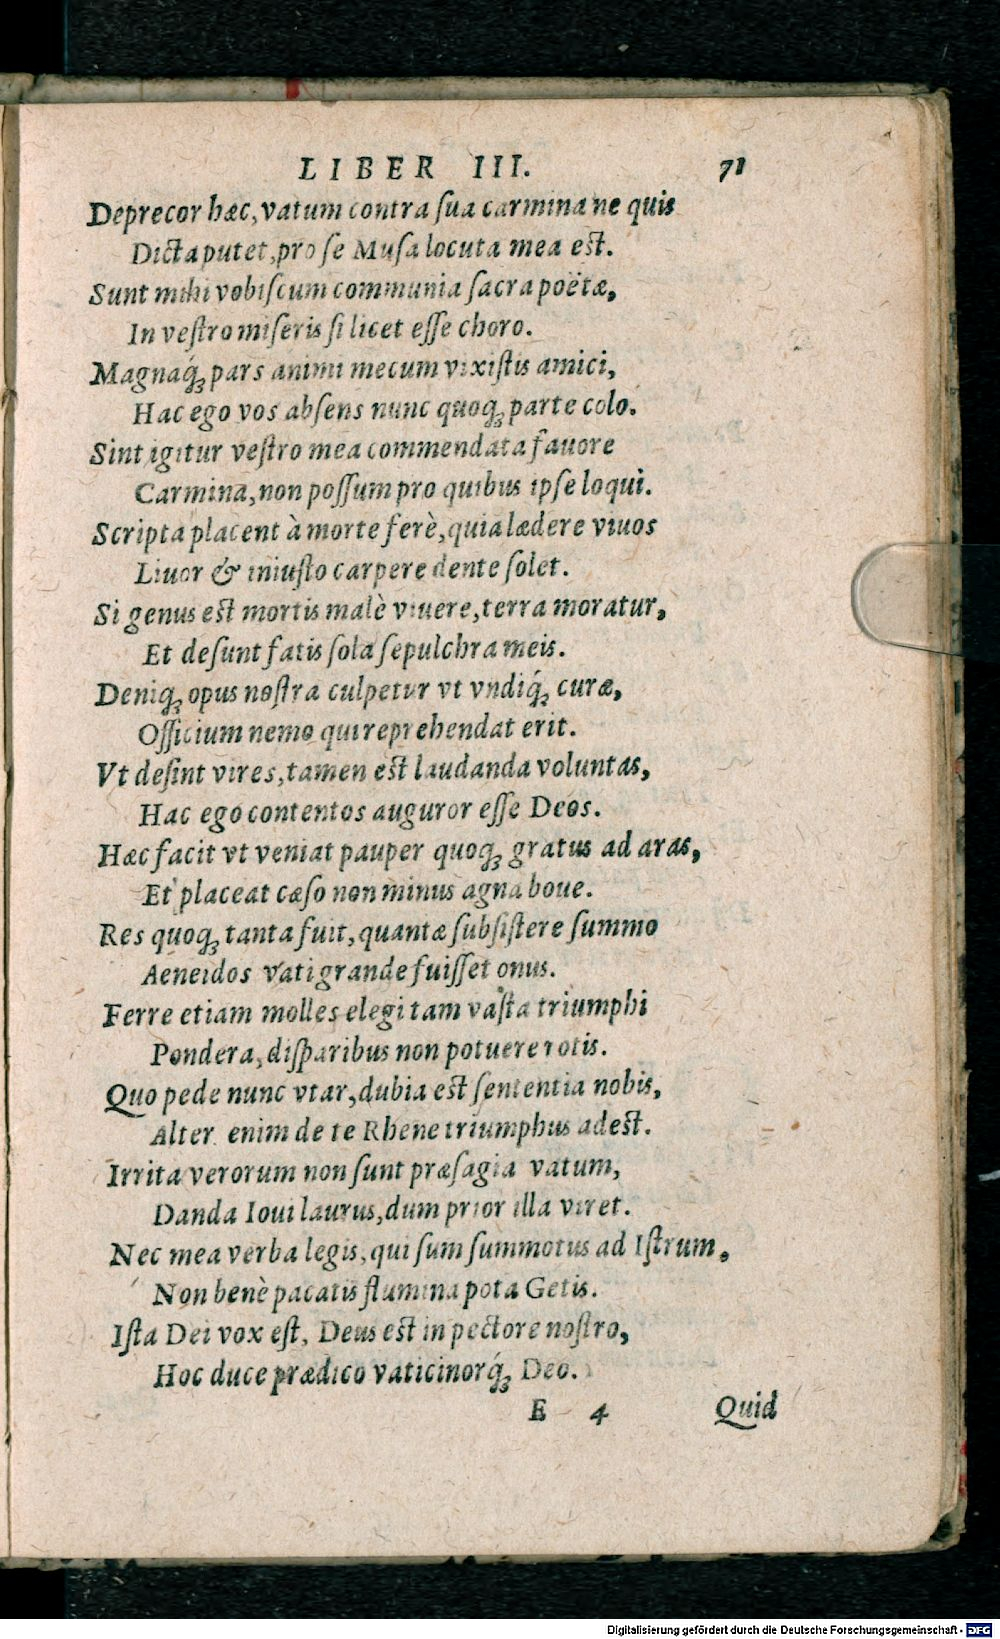 LIBER III. 71
Deprecor hæc, vatum contra ſua carmina ne quis
Dicta putet, pro ſe Muſa locuta mea est.
Sunt mihi vobiſcum communia ſacra poëtæ,
In veſtro miſeris ſi licet eſſe choro.
Magnaq́ꝫ pars animi mecum vixiſtis amici,
Hac ego vos abſens nunc quoqꝫ parte colo.
Sint igitur veſtro mea commendata fauore
Carmina, non poſſum pro quibus ipſe loqui.
Scripta placent à morte ferè, quia lædere viuos
Liuor & iniuſto carpere dente ſolet.
Si genus est mortis malè viuere, terra moratur,
Et deſunt fatis ſola ſepulchra meis.
Deniqꝫ opus noſtra culpetur vt vndiq́ꝫ curæ,
Officium nemo qui reprehendat erit.
Vt deſint vires, tamen est laudanda voluntas,
Hac ego contentos auguror eſſe Deos.
Hæc facit vt veniat pauper quoqꝫ gratus ad aras,
Et placeat cæſo non minus agna boue.
Res quoqꝫ tanta fuit, quantæ ſubſiſtere ſummo
Aeneidos vati grande fuiſſet onus.
Ferre etiam molles elegi tam vaſta triumphi
Pondera, diſparibus non potuere rotis.
Quo pede nunc vtar, dubia est ſententia nobis,
Alter enim de te Rhene triumphus adest.
Irrita verorum non ſunt præſagia vatum,
Danda Ioui laurus, dum prior illa viret.
Nec mea verba legis, qui ſum ſummotus ad Iſtrum,
Non benè pacatis flumina pota Getis.
Iſta Dei vox eſt, Deus est in pectore noſtro,
Hoc duce prædico vaticinorq́ꝫ Deo.
E 4 Quid
Digitalisierung gefördert durch die Deutsche Forschungsgemeinschaft - DFG